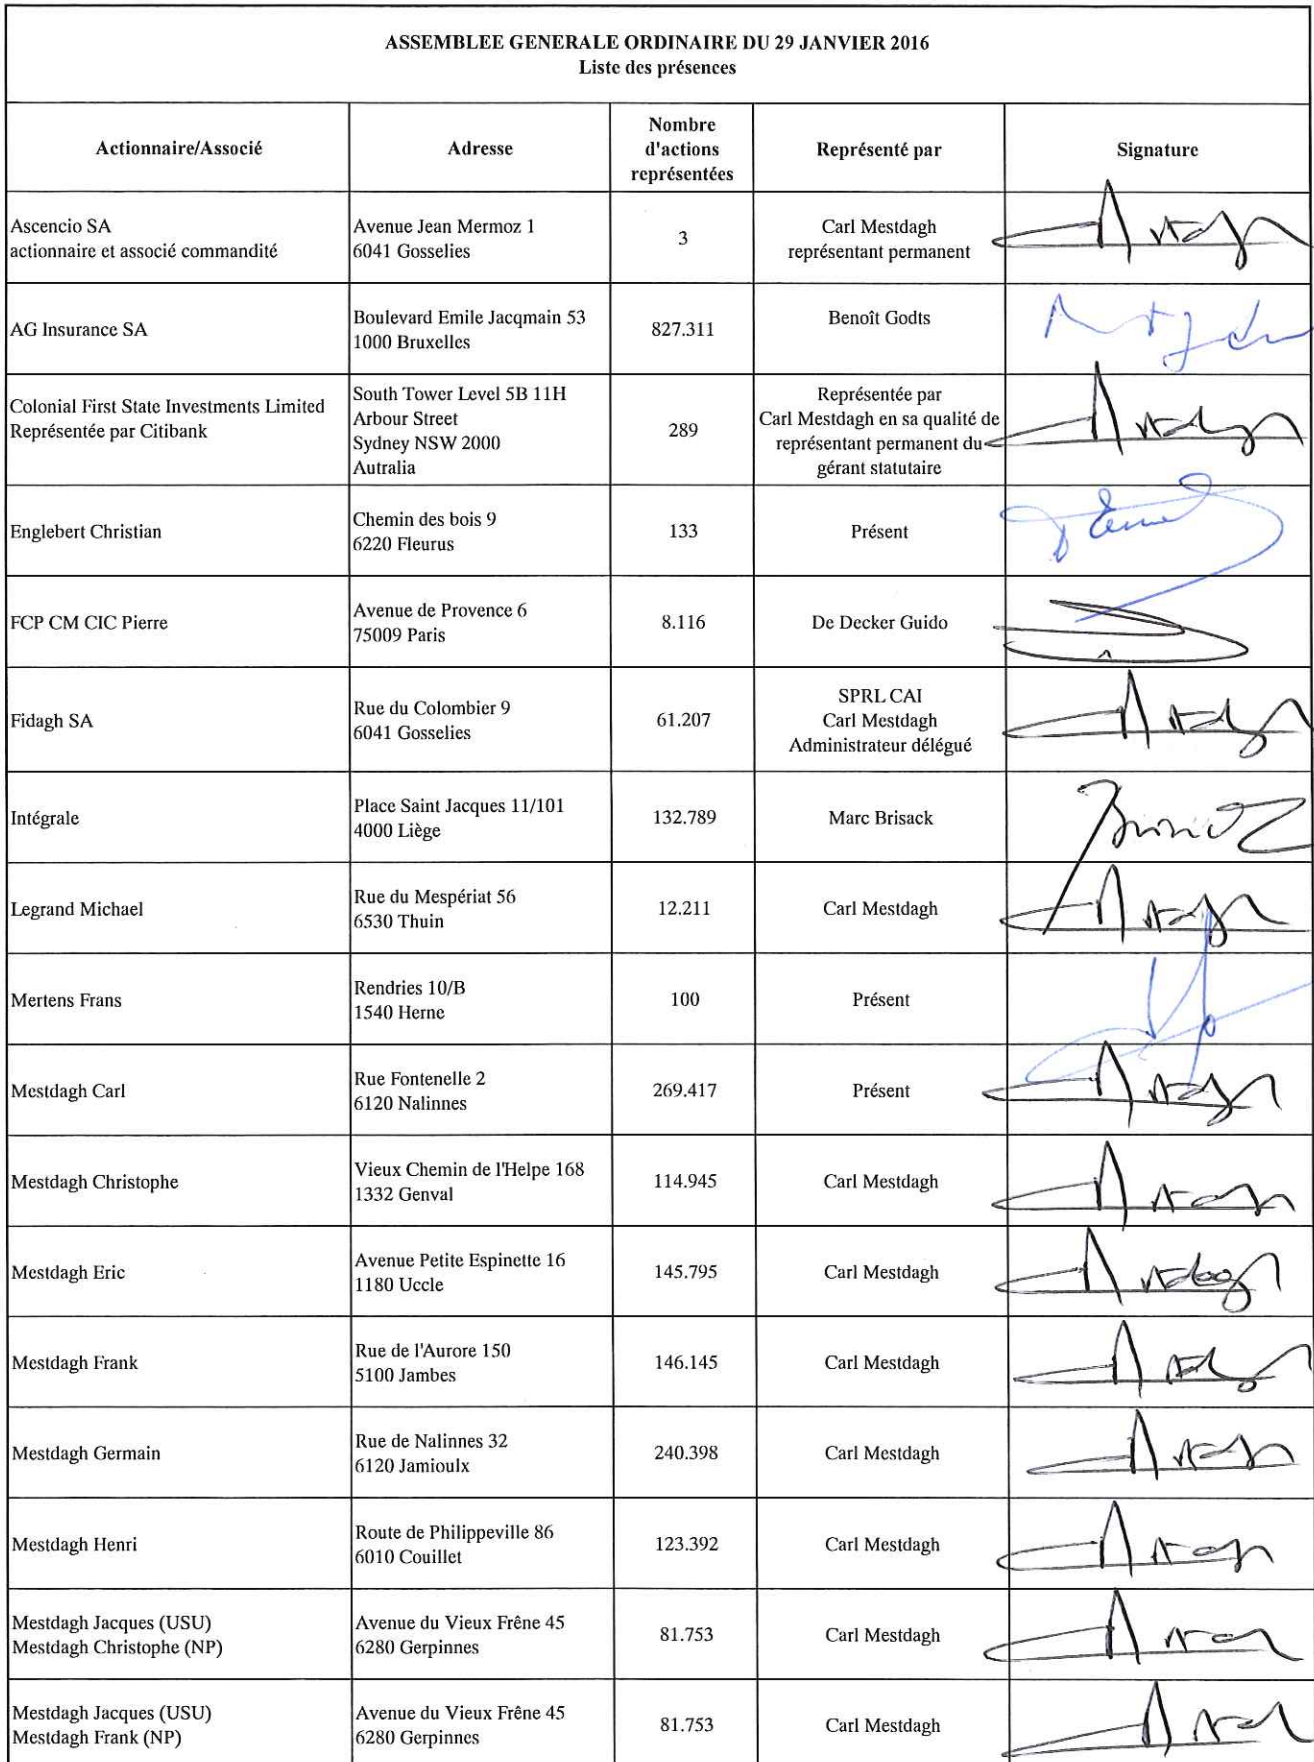 ASSEMBLEE GENERALE ORDINAIRE DU 29 JANVIER 2016
Liste des présences
Actionnaire/Associé
Adresse
Nombre
d'actions
représentées
Représenté par
Signature
Ascencio SA
actionnaire et associé commandité
Avenue Jean Mermoz 1
6041 Gosselies
3
Carl Mestdagh
représentant permanent
AG Insurance SA
Boulevard Emile Jacqmain 53
1000 Bruxelles
827.311
Benoît Godts
Colonial First State Investments Limited
Représentée par Citibank
South Tower Level 5B 11H
Arbour Street
Sydney NSW 2000
Autralia
289
Représentée par
Carl Mestdagh en sa qualité de
représentant permanent du
gérant statutaire
Englebert Christian
Chemin des bois 9
6220 Fleurus
133
Présent
FCP CM CIC Pierre
Avenue de Provence 6
75009 Paris
8.116
De Decker Guido
Fidagh SA
Rue du Colombier 9
6041 Gosselies
61.207
SPRL CAI
Carl Mestdagh
Administrateur délégué
Intégrale
Place Saint Jacques 11/101
4000 Liège
132.789
Marc Brisack
Legrand Michael
Rue du Mespériat 56
6530 Thuin
12.211
Carl Mestdagh
Mertens Frans
Rendries 10/B
1540 Herne
100
Présent
Mestdagh Carl
Rue Fontenelle 2
6120 Nalinnes
269.417
Présent
Mestdagh Christophe
Vieux Chemin de l'Helpe 168
1332 Genval
114.945
Carl Mestdagh
Mestdagh Eric
Avenue Petite Espinette 16
1180 Uccle
145.795
Carl Mestdagh
Mestdagh Frank
Rue de l'Aurore 150
5100 Jambes
146.145
Carl Mestdagh
Mestdagh Germain
Rue de Nalinnes 32
6120 Jamioulx
240.398
Carl Mestdagh
Mestdagh Henri
Route de Philippeville 86
6010 Couillet
123.392
Carl Mestdagh
Mestdagh Jacques (USU)
Mestdagh Christophe (NP)
Avenue du Vieux Frêne 45
6280 Gerpinnes
81.753
Carl Mestdagh
Mestdagh Jacques (USU)
Mestdagh Frank (NP)
Avenue du Vieux Frêne 45
6280 Gerpinnes
81.753
Carl Mestdagh